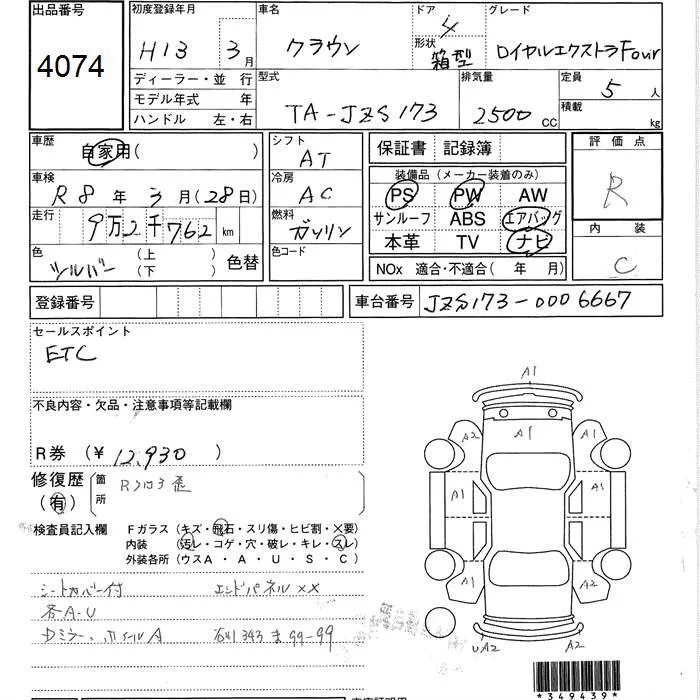 出品番号 4074
初度登録年月 H13 年 3月
車名 クラウン
ドア 4
形状 箱型
グレード ロイヤルエクストラFour
ディーラー・並行
モデル年式 年
ハンドル 左・右
型式 TA-JZS173
排気量 2500 CC
定員 5人
積載 kg
車歴 自家用( )
車検 R8年3月(28日)
走行 9万2千762 km
色 シルバー (上 下) 色替
シフト AT
冷房 AC
燃料 ガソリン
色コード
保証書 記録簿
装備品(メーカー装着のみ)
PS PW AW
サンルーフ ABS エアバッグ
本革 TV ナビ
NOx 適合・不適合( 年 月)
評価点 R
内装 C
登録番号
車台番号 JZS173-0006667
セールスポイント
ETC
不良内容・欠品・注意事項等記載欄
R券 (¥ 12,930 )
修復歴 (有) 箇所
検査員記入欄
Fガラス(キズ・飛石・スリ傷・ヒビ割・X要)
内装(汚レ・コゲ・穴・破レ・キレ・スレ)
外装各所(ウスA・A・U・S・C)
シートカバー付 エンドパネルXX
各A-U
Dミラー、ホイールA
A1
A2 A1 A1
A1 A1
A1 A1
A1 A2
UA2 A2
*349439*